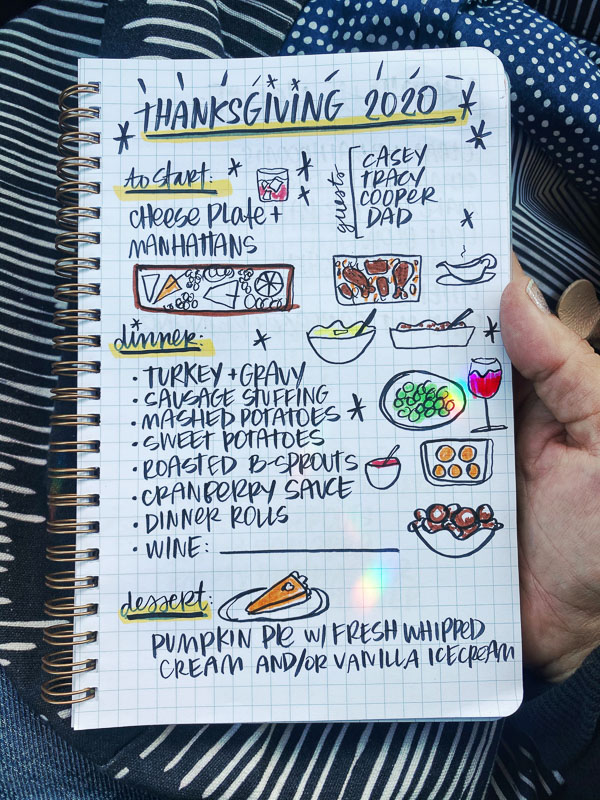 THANKSGIVING 2020
to start:
CHEESE PLATE +
MANHATTANS
guests
CASEY
TRACY
COOPER
DAD
dinner:
• TURKEY + GRAVY
• SAUSAGE STUFFING
• MASHED POTATOES
• SWEET POTATOES
• ROASTED B-SPROUTS
• CRANBERRY SAUCE
• DINNER ROLLS
• WINE:
dessert:
PUMPKIN PIE W/ FRESH WHIPPED
CREAM AND/OR VANILLA ICECREAM